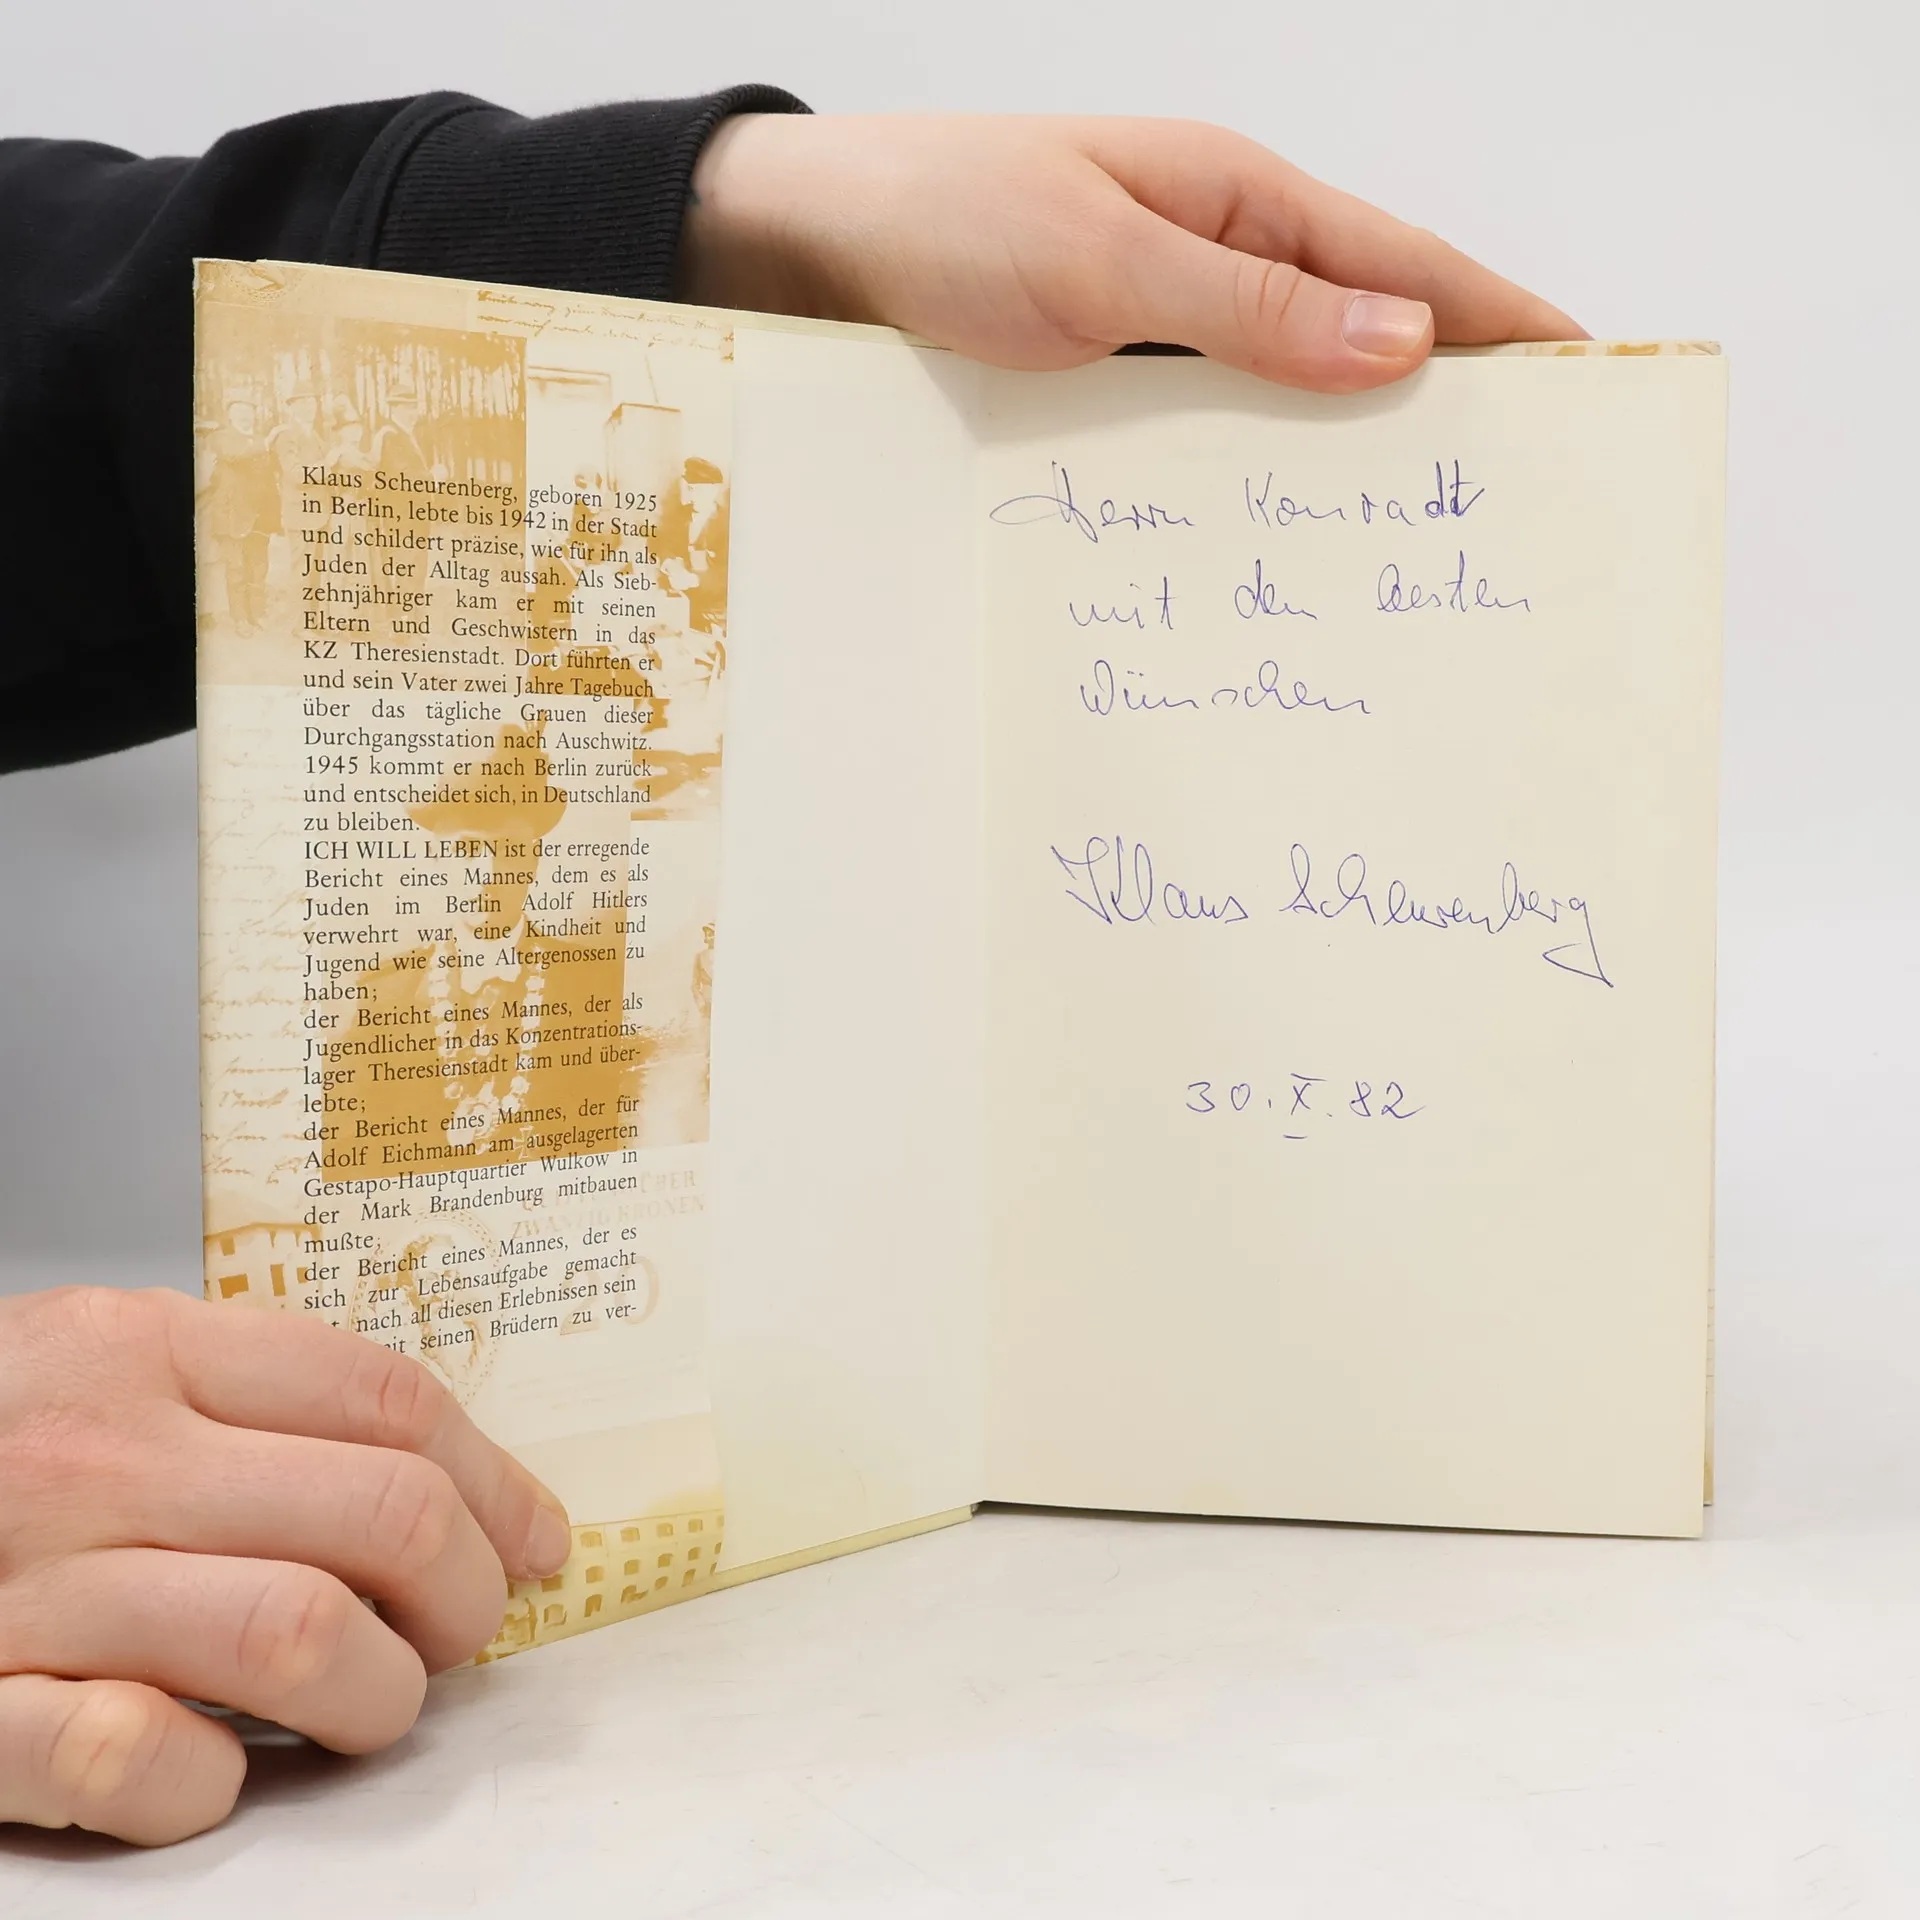 Klaus Scheurenberg, geboren 1925
in Berlin, lebte bis 1942 in der Stadt
und schildert präzise, wie für ihn als
Juden der Alltag aussah. Als Sieb-
zehnjähriger kam er mit seinen
Eltern und Geschwistern in das
KZ Theresienstadt. Dort führten er
und sein Vater zwei Jahre Tagebuch
über das tägliche Grauen dieser
Durchgangsstation nach Auschwitz.
1945 kommt er nach Berlin zurück
und entscheidet sich, in Deutschland
zu bleiben.
ICH WILL LEBEN ist der erregende
Bericht eines Mannes, dem es als
Juden im Berlin Adolf Hitlers
verwehrt war, eine Kindheit und
Jugend wie seine Altergenossen zu
haben;
der Bericht eines Mannes, der als
Jugendlicher in das Konzentrations-
lager Theresienstadt kam und über-
lebte;
der Bericht eines Mannes, der für
Adolf Eichmann am ausgelagerten
Gestapo-Hauptquartier Wulkow in
der Mark Brandenburg mitbauen
mußte;
der Bericht eines Mannes, der es
sich zur Lebensaufgabe gemacht
nach all diesen Erlebnissen sein
seinen Brüdern zu ver-
ZWANZIG KRONEN
20
Herrn Konradt
mit den besten
Wünschen
Klaus Scheurenberg
30. X. 82